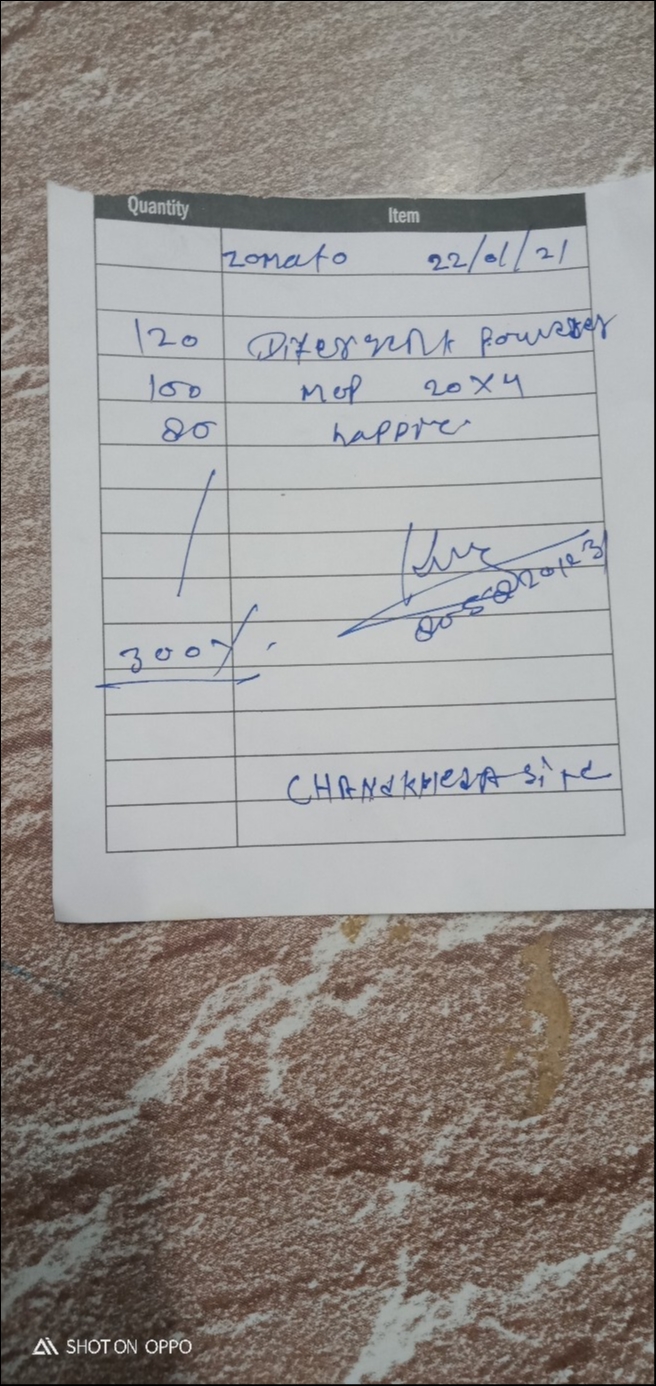 Quantity Item
zomato 22/01/21
120 Ditergent powder
100 mop 20x4
80 happic
300/.
CHANdKHEDA site
SHOT ON OPPO